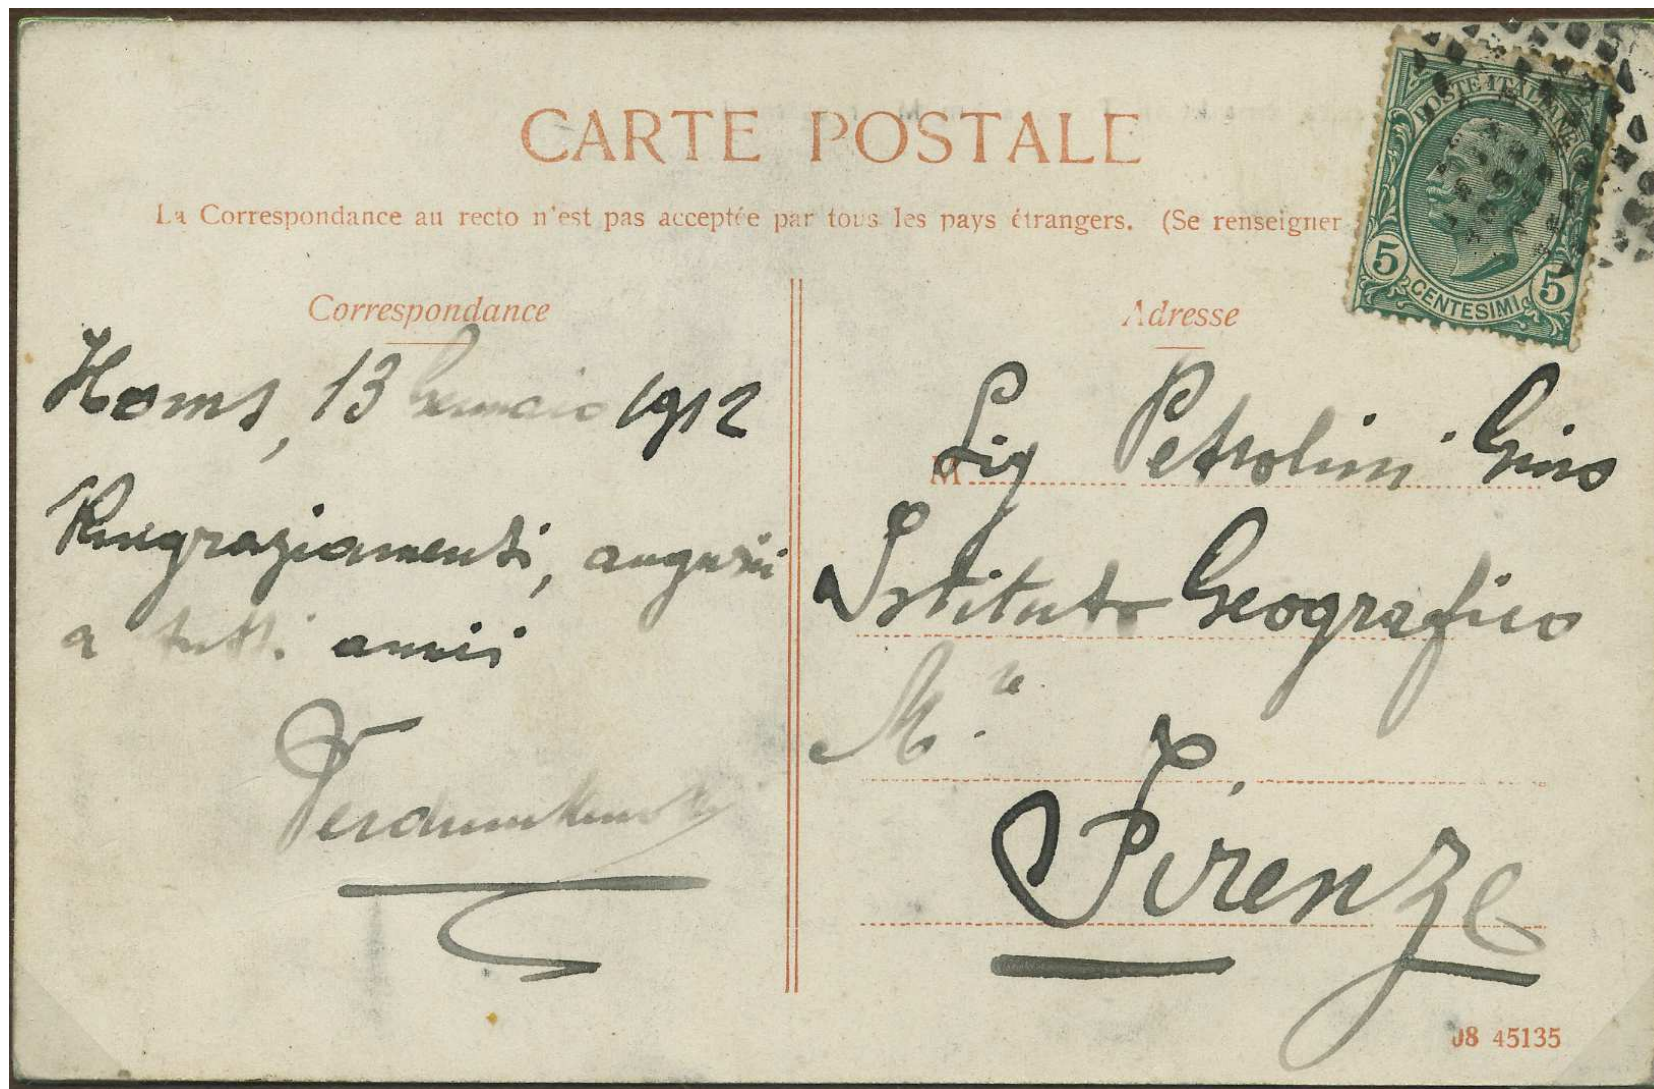 CARTE POSTALE
La Correspondance au recto n'est pas acceptée par tous les pays étrangers. (Se renseigner
POSTE ITALIANE
5 CENTESIMI 5
Correspondance
Homs, 13 Gennaio 1912
Ringraziamenti, auguri
a tutti amici
Adresse
M
Sig Petrolini Gino
Istituto Geografico
M.re
Firenze
08 45135